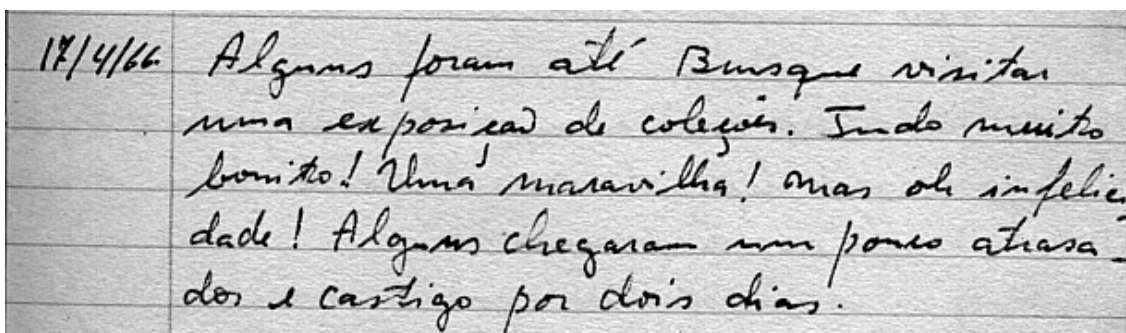 17/4/66 Alguns foram até Brusque visitar
uma exposição de coleções. Tudo muito
bonito! Uma maravilha! Mas oh infelici
dade! Alguns chegaram um pouco atrasa-
dos e castigo por dois dias.